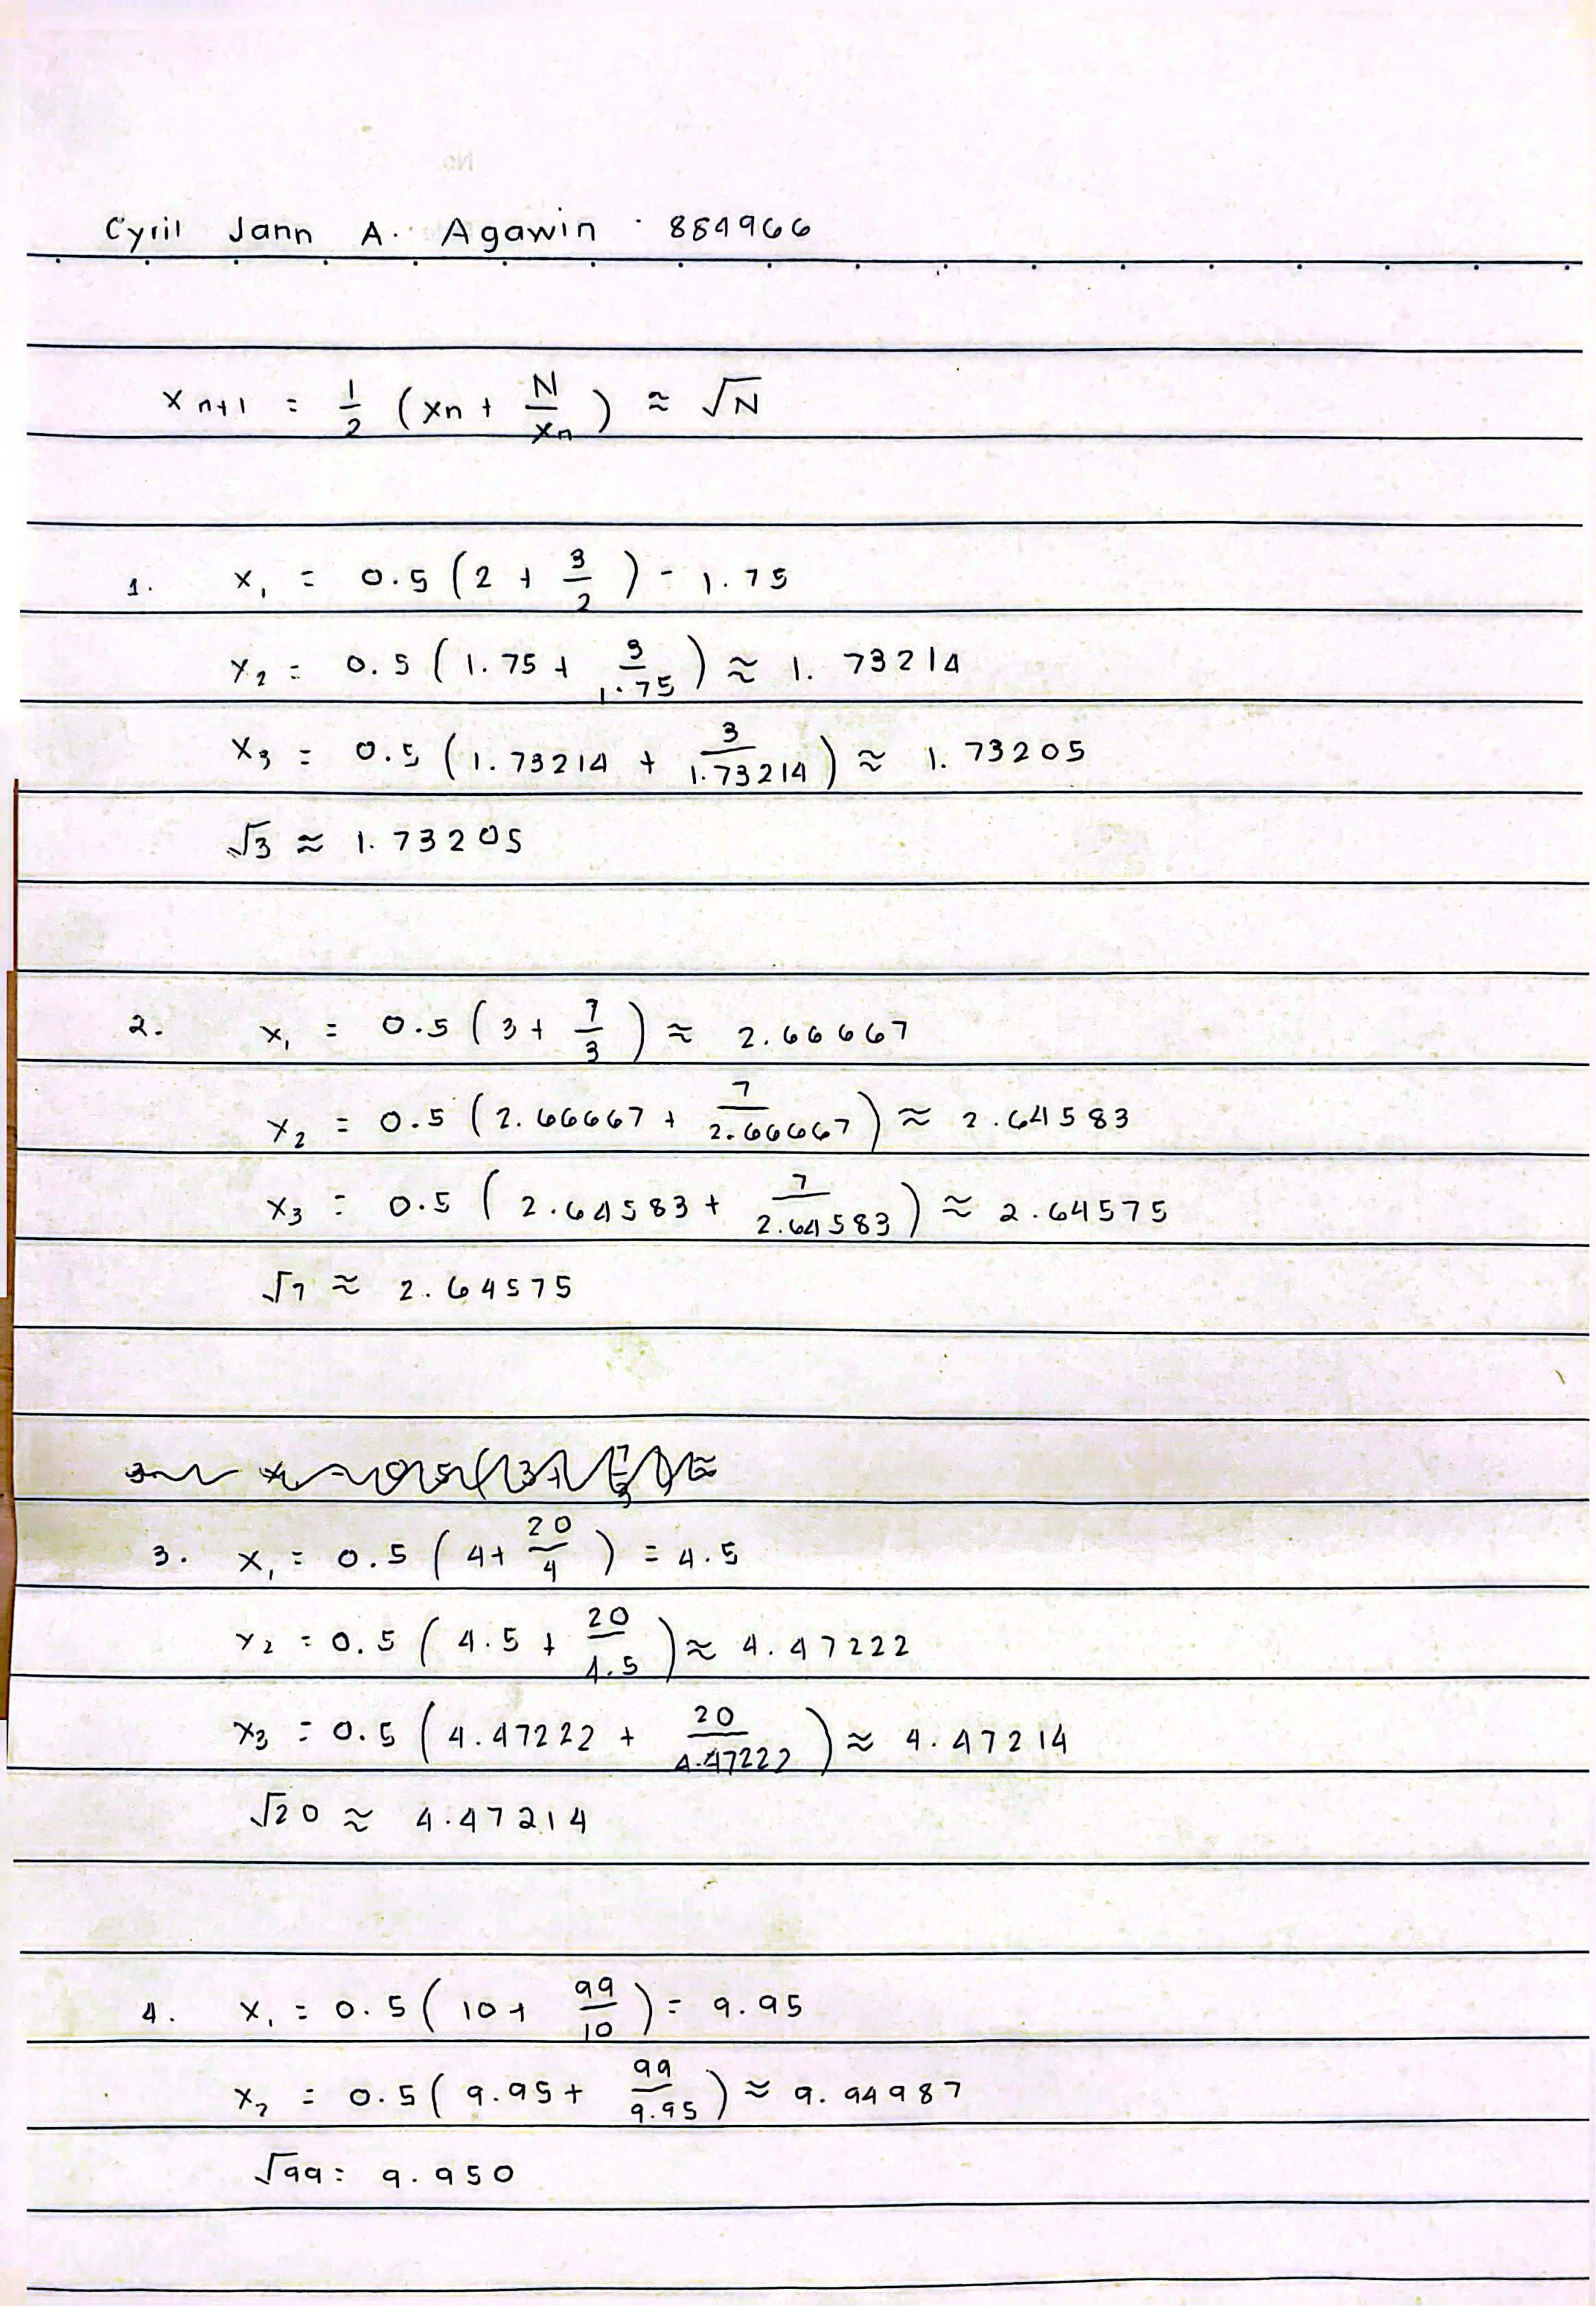 Cyril Jann A. Agawin 884966
x n+1 = 1/2 (xn + N/xn) ≈ √N
1. x₁ = 0.5 (2 + 3/2) = 1.75
x₂ = 0.5 (1.75 + 3/1.75) ≈ 1.73214
x₃ = 0.5 (1.73214 + 3/1.73214) ≈ 1.73205
√3 ≈ 1.73205
2. x₁ = 0.5 (3 + 7/3) ≈ 2.66667
x₂ = 0.5 (2.66667 + 7/2.66667) ≈ 2.64583
x₃ = 0.5 (2.64583 + 7/2.64583) ≈ 2.64575
√7 ≈ 2.64575
3. x₁ = 0.5 (4 + 20/4) = 4.5
x₂ = 0.5 (4.5 + 20/4.5) ≈ 4.47222
x₃ = 0.5 (4.47222 + 20/4.47222) ≈ 4.47214
√20 ≈ 4.47214
4. x₁ = 0.5 (10 + 99/10) = 9.95
x₂ = 0.5 (9.95 + 99/9.95) ≈ 9.94987
√99 = 9.950